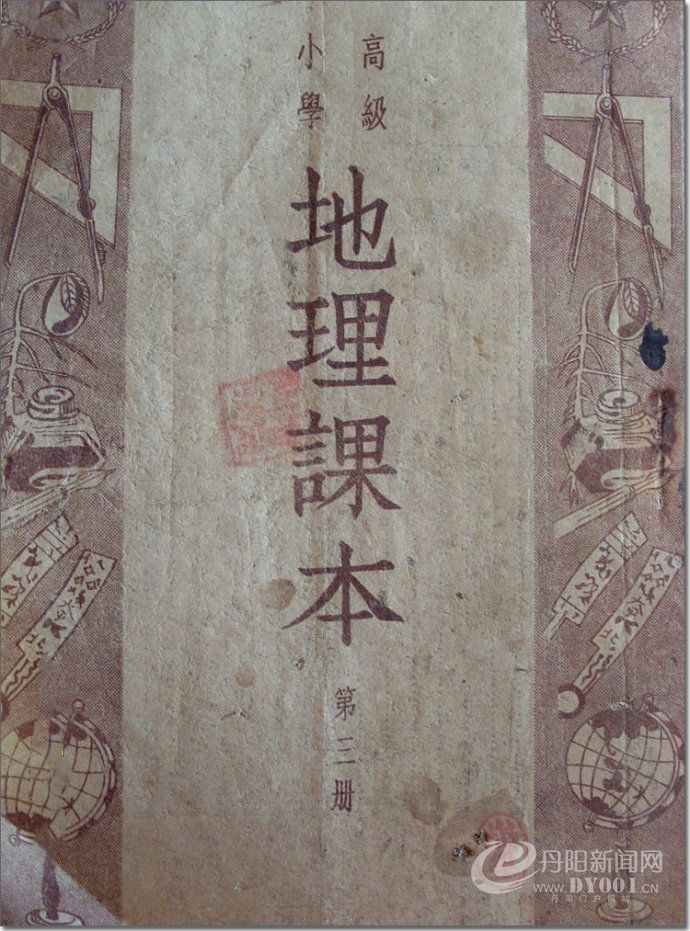 高級
小學
地理課本
第三册
丹阳新闻网
WWW.DY001.CN
丹阳门户网站